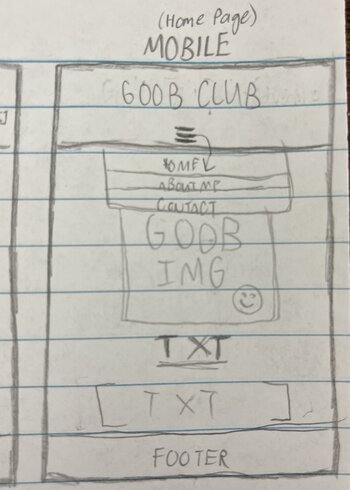 (Home Page)
MOBILE
GOOB CLUB
HOME
ABOUT ME
CONTACT
GOOB
IMG
TXT
TXT
FOOTER